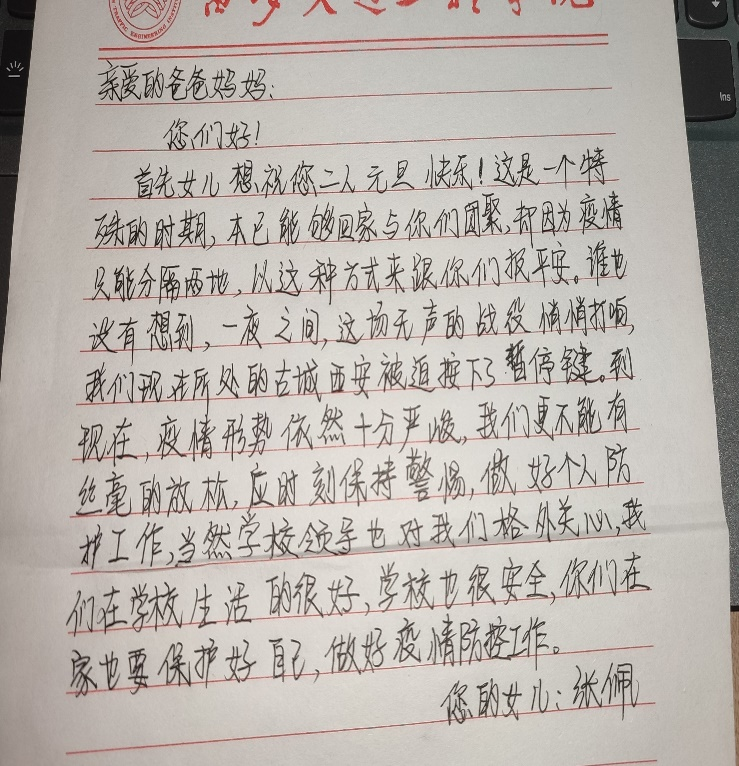 亲爱的爸爸妈妈:
您们好!
首先女儿想祝您二人元旦快乐!这是一个特
殊的时期,本已能够回家与你们团聚,却因为疫情
只能分隔两地,以这种方式来跟你们报平安。谁也
没有想到,一夜之间,这场无声的战役悄悄打响,
我们现在所处的古城西安被迫按下了暂停键。到
现在,疫情形势依然十分严峻,我们更不能有
丝毫的放松,应时刻保持警惕,做好个人防
护工作,当然学校领导也对我们格外关心,我
们在学校生活的很好,学校也很安全,你们在
家也要保护好自己,做好疫情防控工作。
您的女儿:张佩
Ins